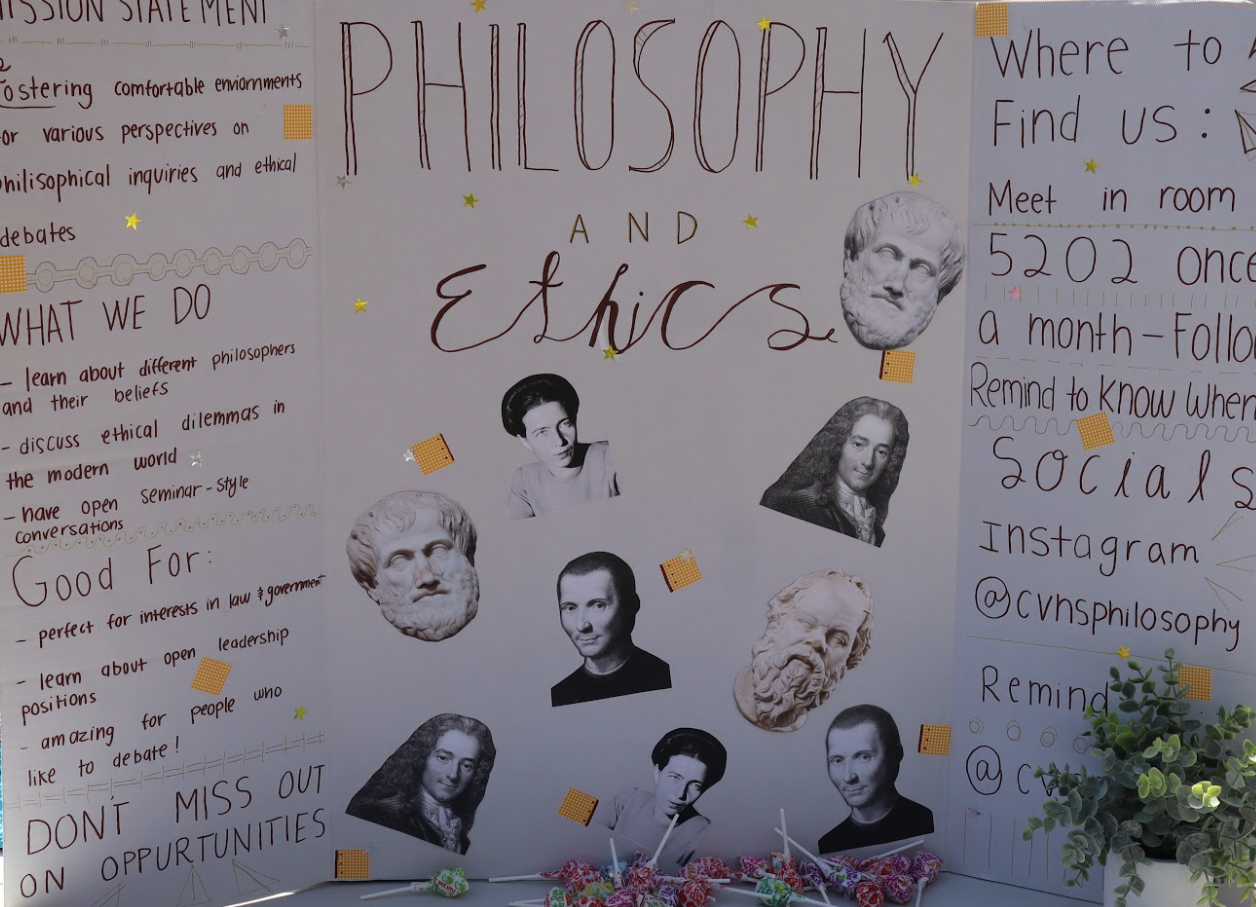 ISSION STATEMENT
fostering comfortable enviornments
or various perspectives on
philisophical inquiries and ethical
debates
WHAT WE DO
- learn about different philosophers
and their beliefs
- discuss ethical dilemmas in
the modern world
- have open seminar-style
conversations
Good For:
- perfect for interests in law & government
- learn about open leadership
positions
- amazing for people who
like to debate!
DON'T MISS OUT
ON OPPURTUNITIES
PHILOSOPHY
AND
Ethics
Where to
Find us:
Meet in room
5202 once
a month - Follo
Remind to Know When
Socials
Instagram
@cvhsphilosophy
Remind
@cv